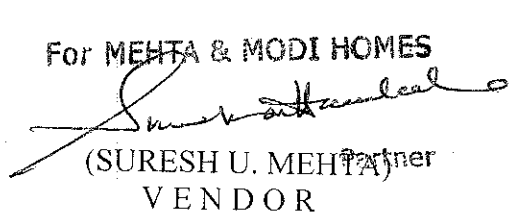 For MEHTA & MODI HOMES
(SURESH U. MEHTA)
Partner
VENDOR